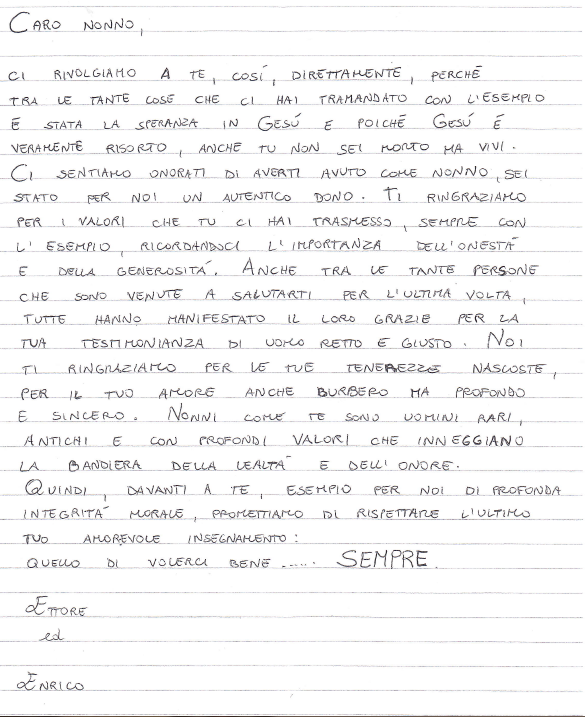 CARO NONNO,
CI RIVOLGIAMO A TE, COSÍ, DIRETTAMENTE, PERCHÉ
TRA LE TANTE COSE CHE CI HAI TRAMANDATO CON L'ESEMPIO
É STATA LA SPERANZA IN GESÚ E POICHÉ GESÚ É
VERAMENTE RISORTO, ANCHE TU NON SEI MORTO MA VIVI.
CI SENTIAMO ONORATI DI AVERTI AVUTO COME NONNO, SEI
STATO PER NOI UN AUTENTICO DONO. TI RINGRAZIAMO
PER I VALORI CHE TU CI HAI TRASMESSO, SEMPRE CON
L'ESEMPIO, RICORDANDOCI L'IMPORTANZA DELL'ONESTÁ
E DELLA GENEROSITÁ. ANCHE TRA LE TANTE PERSONE
CHE SONO VENUTE A SALUTARTI PER L'ULTIMA VOLTA,
TUTTE HANNO MANIFESTATO IL LORO GRAZIE PER LA
TUA TESTIMONIANZA DI UOMO RETTO E GIUSTO. NOI
TI RINGRAZIAMO PER LE TUE TENEREZZE NASCOSTE,
PER IL TUO AMORE ANCHE BURBERO MA PROFONDO
E SINCERO. NONNI COME TE SONO UOMINI RARI,
ANTICHI E CON PROFONDI VALORI CHE INNEGGIANO
LA BANDIERA DELLA LEALTÁ E DELL'ONORE.
QUINDI, DAVANTI A TE, ESEMPIO PER NOI DI PROFONDA
INTEGRITÁ MORALE, PROMETTIAMO DI RISPETTARE L'ULTIMO
TUO AMOREVOLE INSEGNAMENTO:
QUELLO DI VOLERCI BENE ..... SEMPRE.
ETTORE
ed
ENRICO